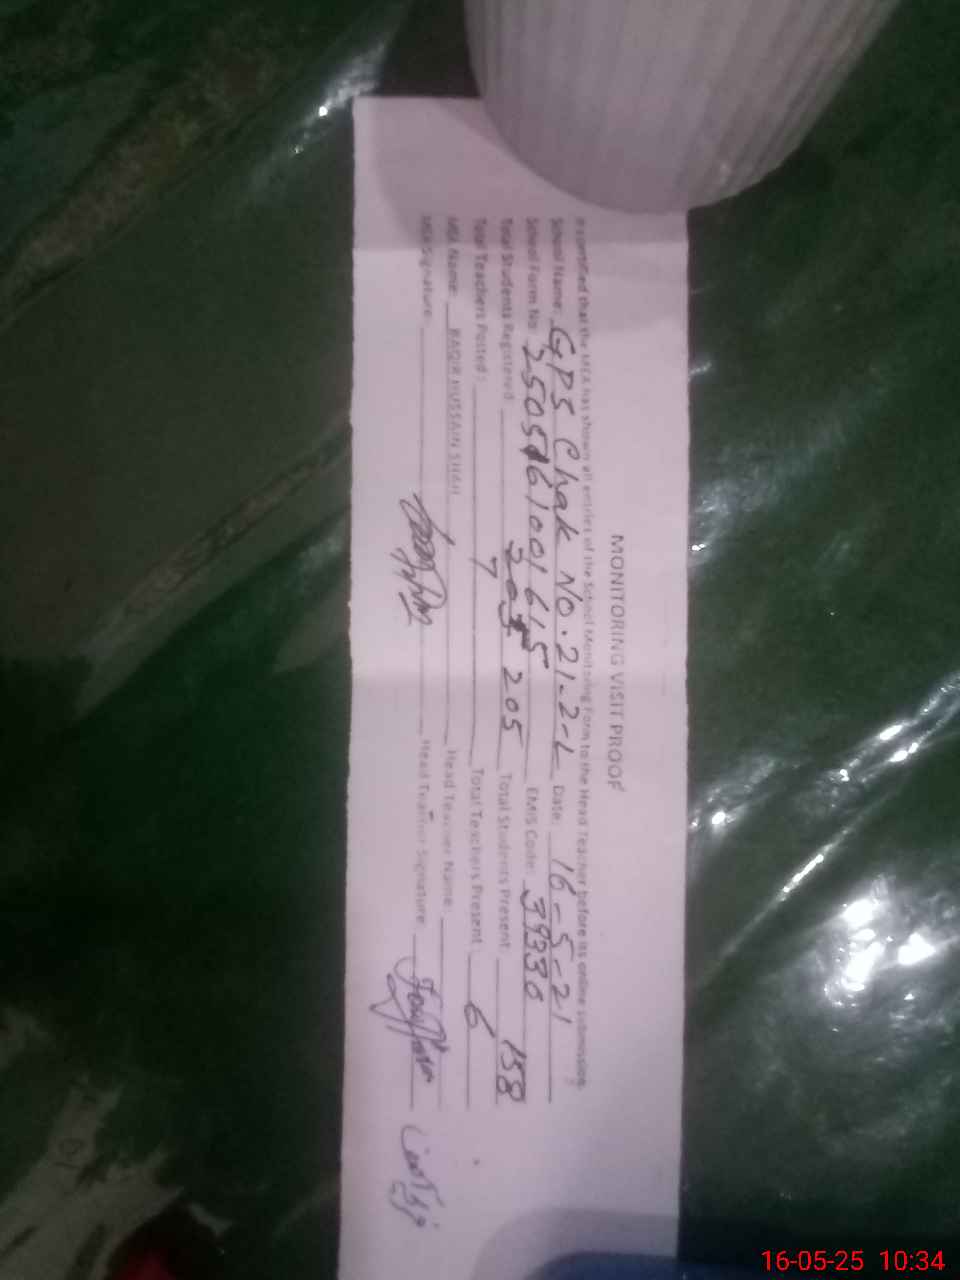 MONITORING VISIT PROOF
It is certified that the MEA has shown all entries of the School Monitoring Form to the Head Teacher before its online submission.
School Name: GPS Chak No. 21-2-L Date: 16-5-21
School Form No: EMIS Code: 39330
Total Students Registered: 205 Total Students Present: 158
Total Teachers Posted: 7 Total Teachers Present: 6
MEA Name: BAQIR HUSSAIN SHAH Head Teacher Name:
MEA Signature: Head Teacher Signature:
16-05-25 10:34